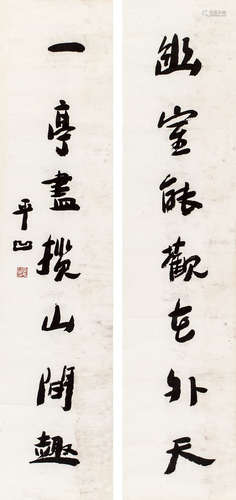 幽室能觀世外天
一亭盡攬山間趣
平凹